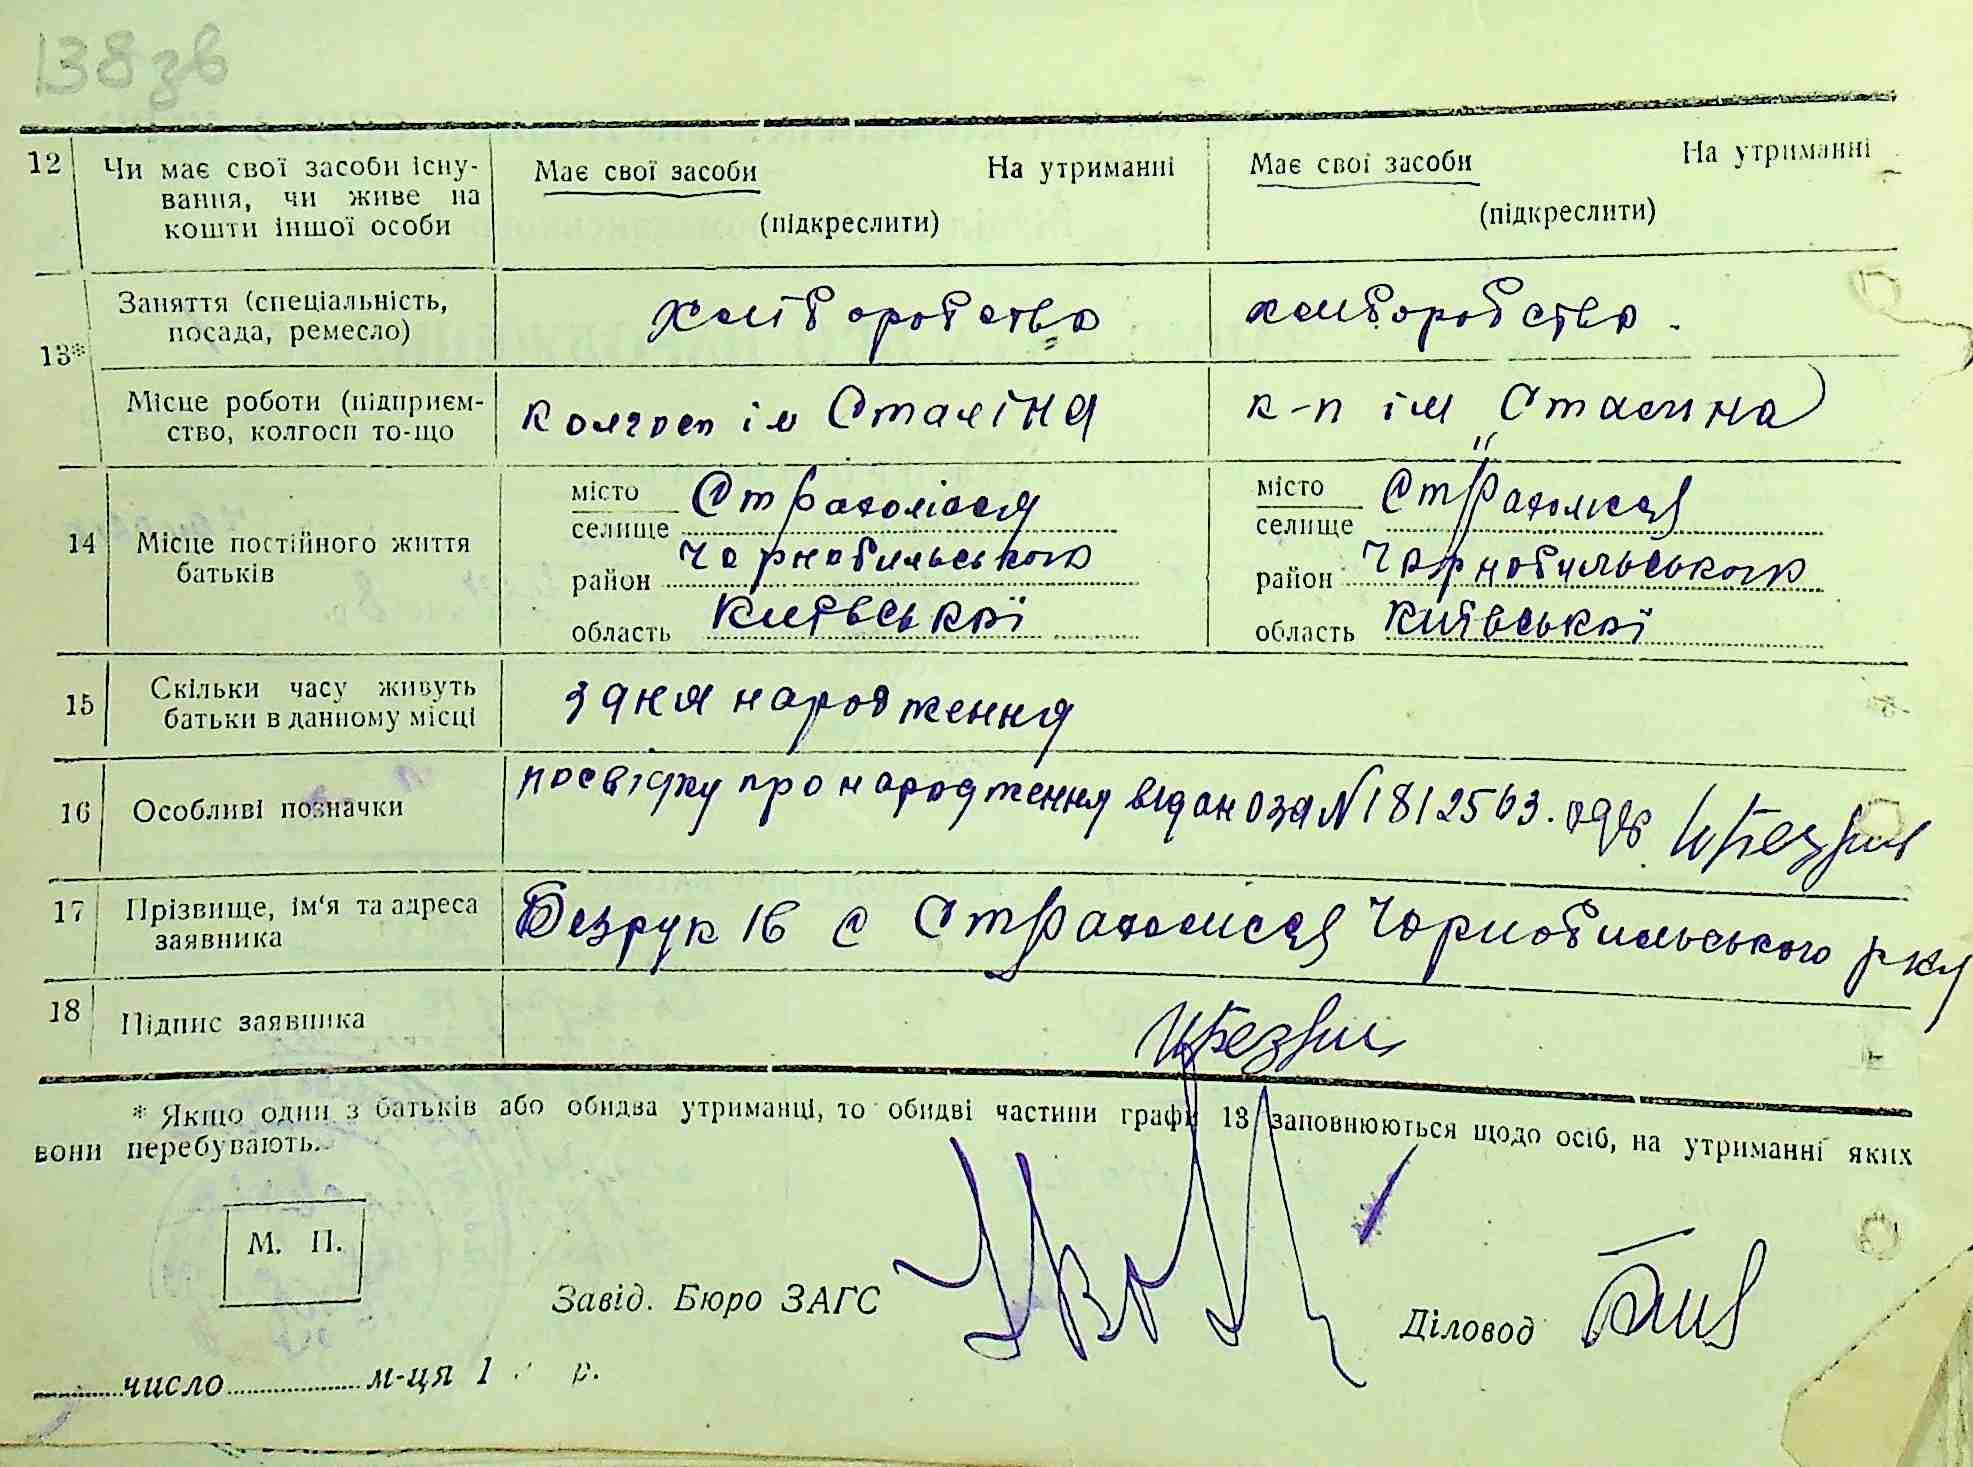 138зв
12 Чи має свої засоби існу-
вання, чи живе на
кошти іншої особи
Має свої засоби На утриманні
(підкреслити)
Має свої засоби На утриманні
(підкреслити)
13*
Заняття (спеціальність,
посада, ремесло)
хліборобство
хліборобство.
Місце роботи (підприєм-
ство, колгосп то-що
колгосп ім Сталіна
к-п ім Сталина
14 Місце постійного життя
батьків
місто
селище Страхолісся
район Чорнобильського
область Київської
місто
селище Страхолісся
район Чорнобильського
область Київської
15 Скільки часу живуть
батьки в данному місці
з дня народження
16 Особливі позначки
посвідку про народження відано за N 1812563.
17 Прізвище, ім'я та адреса
заявника
Безрук Ів С Страхолисся Чорнобильського р-ну
18 Підпис заявника
* Якщо один з батьків або обидва утриманці, то обидві частини графи 13 заповнюються щодо осіб, на утриманні яких
вони перебувають.
М. П.
Завід. Бюро ЗАГС
Діловод
число м-ця 1 р.